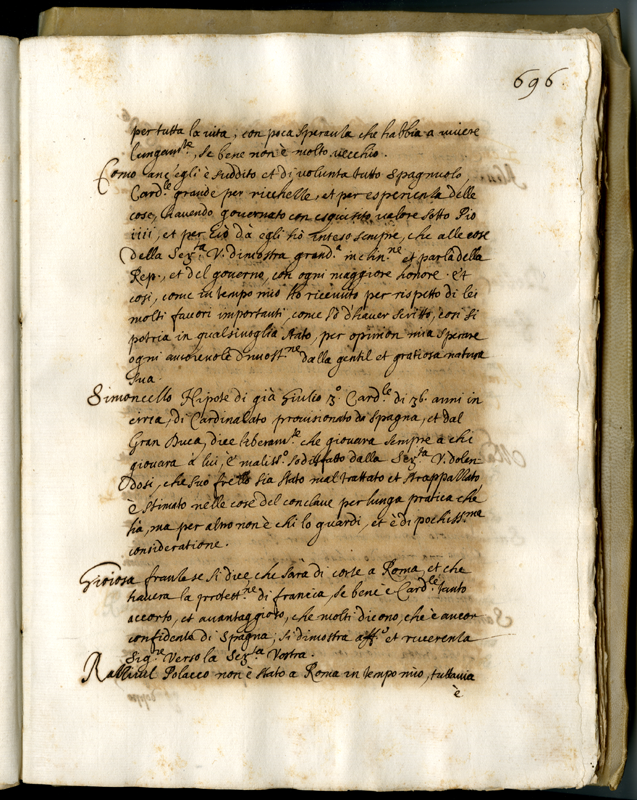 696.
per tutta la vita, con poca speranza che habbia a vivere
lungam.te, se bene non è molto vecchio.
Como anc'egli è suddito et di volunta tutto Spagnuolo,
Card.le grande per ricchezze, et per esperienza delle
cose, havendo governato con esquisito valore sotto Pio
iiii, et per ciò da egli hò inteso sempre, che alle cose
della Ser.ta V. dimostra grand.a inclin.ne et parla della
Rep., et del governo, con ogni maggiore honore. et
così, come in tempo mio ho ricevuto per rispetto di lei
molti favori importanti, come sò d'haver scritto, così si
potria in qualsivoglia stato, per opinion mia sperare
ogni amorevole dimost.ne dalla gentil et gratiosa natura
sua.
Simoncello Nipote di già Giulio 3.o Card.le di 36. anni in
circa, di Cardinalato provisionato da Spagna, et dal
Gran Duca, dice liberam.te che giovara sempre a chi
giovara a lui, è maliss.o sodisfatto dalla Ser.ta V. dolen
dosi, che suo frello sia stato mal trattato et strappazzato
è stimato nelle cose del conclave per lunga pratica che
ha, ma per altro non è chi lo guardi, et è di pochiss.ma
consideratione.
Gioiosa franzese si dice, che sarà di corte a Roma, et che
havera la protett.ne di francia, se bene è Card.le tanto
accorto, et avantaggioso, che molti dicono, che è ancor
confidente di Spagna; si dimostra aff.o et riverenza
Sig.re verso la Ser.ta Vostra.
Razivil Polacco non è stato a Roma in tempo mio, tuttavia
è